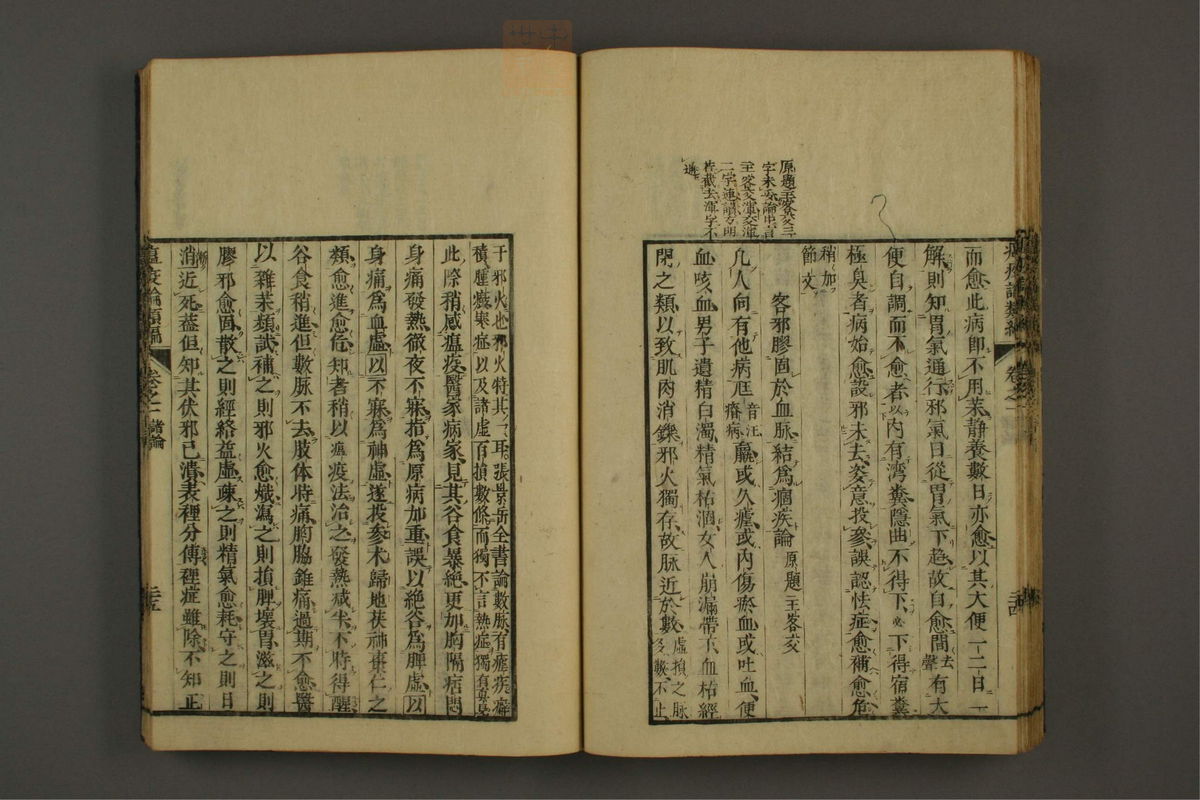 原題主客交三
字未妥論中言
主客交渾交渾
二字連讀方明
若截去渾字不
通
而愈此病即不用藥静養數日亦愈以其大便一二日一
解則知胃氣通行邪氣日從胃氣下趨故自愈間去聲有大
便自調而不愈者以内有湾糞隱曲不得下必下得宿糞
極臭者病始愈設邪未去妄意投參誤認怯症愈補愈危
稍加
節文
客邪膠固於血脉結爲痼疾論原題主客交
凡人向有他病尫音汪瘠病羸或久瘧或内傷瘀血或吐血便
血咳血男子遺精白濁精氣枯涸女人崩漏帶下血枯經
閉之類以致肌肉消鑠邪火獨存故脉近於數虚損之脉多數不止
于邪火也邪火特其一耳張景岳全書論數脉有瘧疾癖
積臃瘍寒症以及諸虚百損數條而獨不言熱症獨有真見
此際稍感瘟疫醫家病家見其谷食暴絶更加胸隔痞悶
身痛發熱徹夜不寐指爲原病加重誤以絶谷爲脾虚以
身痛爲血虚以不寐爲神虚遂投參术歸地茯神棗仁之
類愈進愈危知者稍以瘟疫法治之發熱减半不時得醒
谷食稍進但數脉不去肢体時痛胸脇錐痛過期不愈醫
以雜藥頻試補之則邪火愈熾瀉之則損脾壊胃滋之則
膠邪愈固散之則經絡益虚疎之則精氣愈耗守之則日
漸消近死葢但知其伏邪已潰表裡分傳裡症雖除不知正
瘟疫論類編
卷之二 諸論
二十五